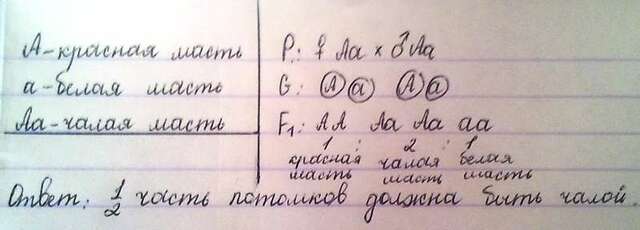 А-красная масть
а-белая масть
Аа-чалая масть
P: ♀ Аа × ♂ Аа
G: А а А а
F₁: АА Аа Аа аа
1 : 2 : 1
красная чалая белая
масть масть масть
Ответ: 1/2 часть потомков должна быть чалой.